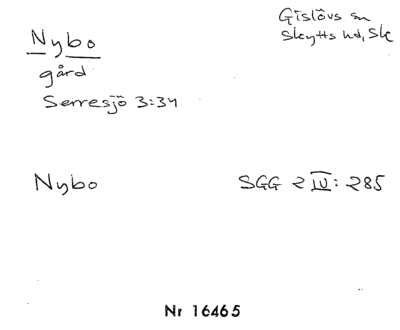 Nybo
gård
Serresjö 3:34
Gislövs sn
Skytts hd, Sk
Nybo
SGG 2 IV: 285
Nr 16465